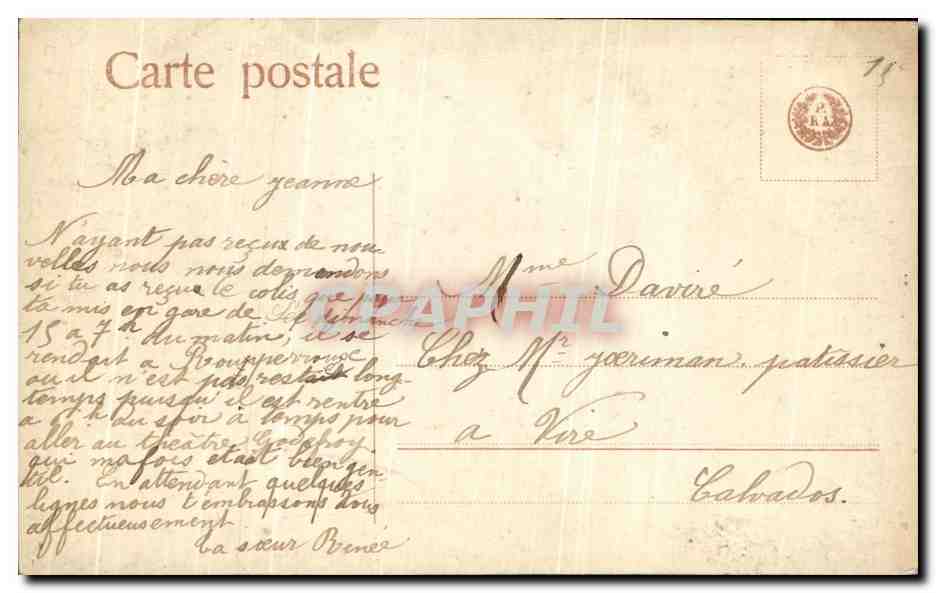 Carte postale
15
P.
R A
Ma chère Jeanne
N'ayant pas reçux de nou-
velles nous nous demendons
si tu as reçue le colis que
ta mis en gare de dimanche
15 a 7h du matin, il se
rendait a Roupperrouge
ou il n'est pas resté long-
temps puisqu'il est rentre
a h du soir à temps pour
aller au théatre Godefroy
qui ma fois était bien gen-
til. En attendant quelques
lignes nous t'embrassons tous
affectueusement
ta sœur Renée
Mme Daviré
Chez Mr patissier
a Vire
Calvados.
CPAPHIL